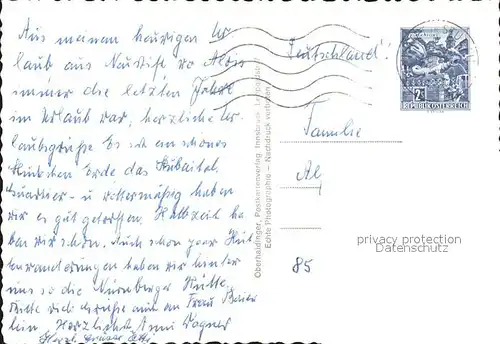 Aus meinem heurigen Ur
laub aus Neustift wo Alois
immer die letzten Jahre
im Urlaub war, herzliche Ur-
laubsgrüße. Es ist ein schönes
Stückchen Erde das Stubaital.
Quartier- u wettermäßig haben
wir es gut getroffen. Halbzeit ha
ben wir schon. Auch schon paar Hüt
tenwanderungen haben wir hinter
uns so die Nürnberger Hütte.
Bitte die Grüße auch an Frau Baier
lein Herzlichst Anni Wagner
Herzl. Grüsse
Oberhaidinger, Postkartenverlag Innsbruck
Echte Photographie – Nachdruck verboten
Deutschland!
2 S
REPUBLIK ÖSTERREICH
Familie
Al
85
privacy protection
Datenschutz